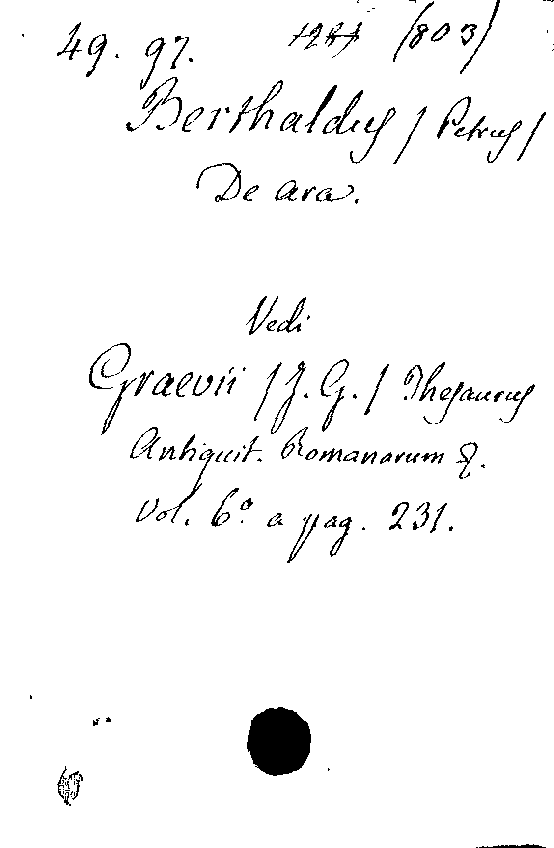 49. 97. (803)
Berthaldus / Petrus /
De ara.
Vedi
Graevii / J. G. / Thesaurus
Antiquit. Romanarum &.
Vol. 6º a pag. 231.